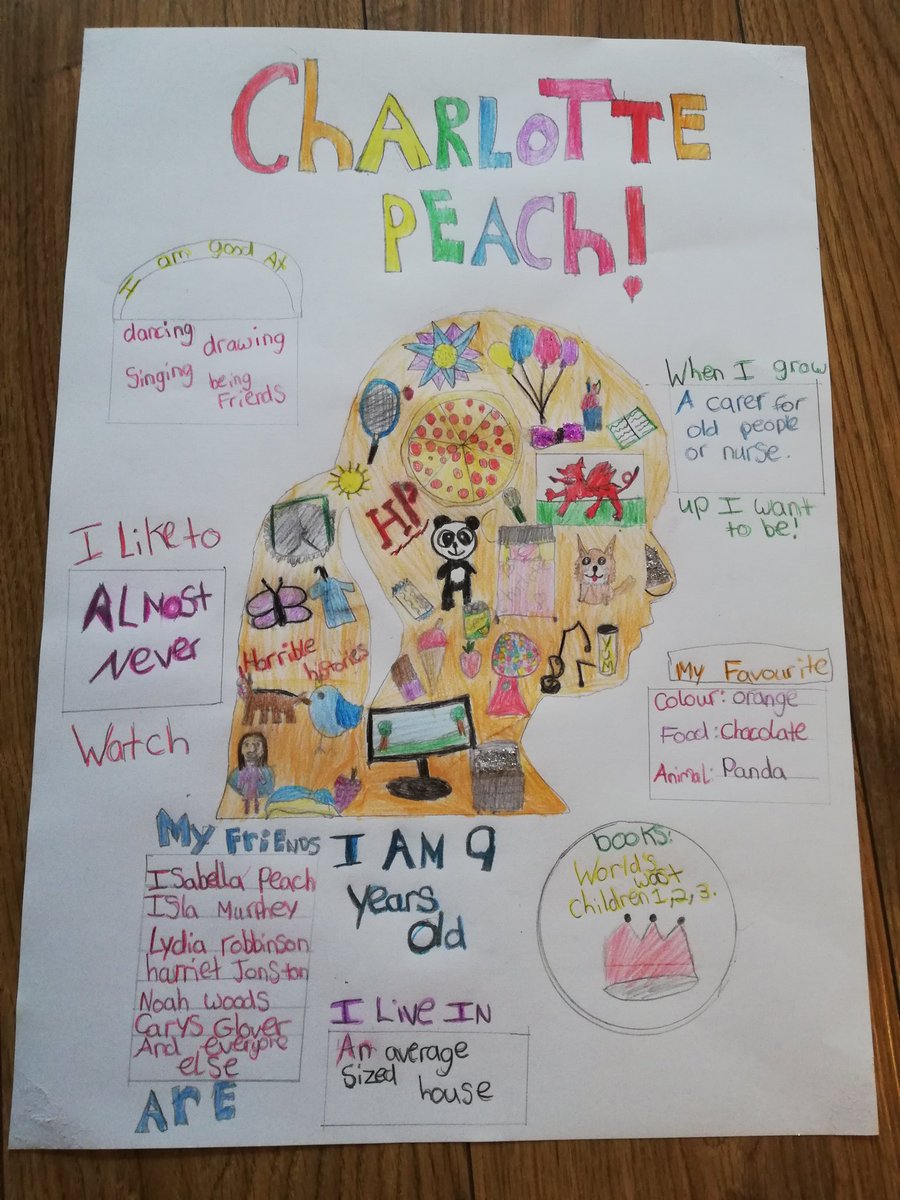 ChARLOTTE
PEACh!
I am good At
dancing drawing
Singing being
Friends
When I grow
A carer for
old people
or nurse.
up I want
to be!
I Like to
ALMOst
Never
Watch
HP
Horrible
histories
YUM
My Favourite
Colour: orange
Food: Chocolate
Animal: Panda
My FriENDS
ISabella Peach
ISla Murphey
Lydia robbinson
harriet Jonston
Noah woods
Carys Glover
And everyone
else
ArE
I AM 9
years
Old
I Live IN
An average
Sized house
books:
World's
worst
children 1,2,3.